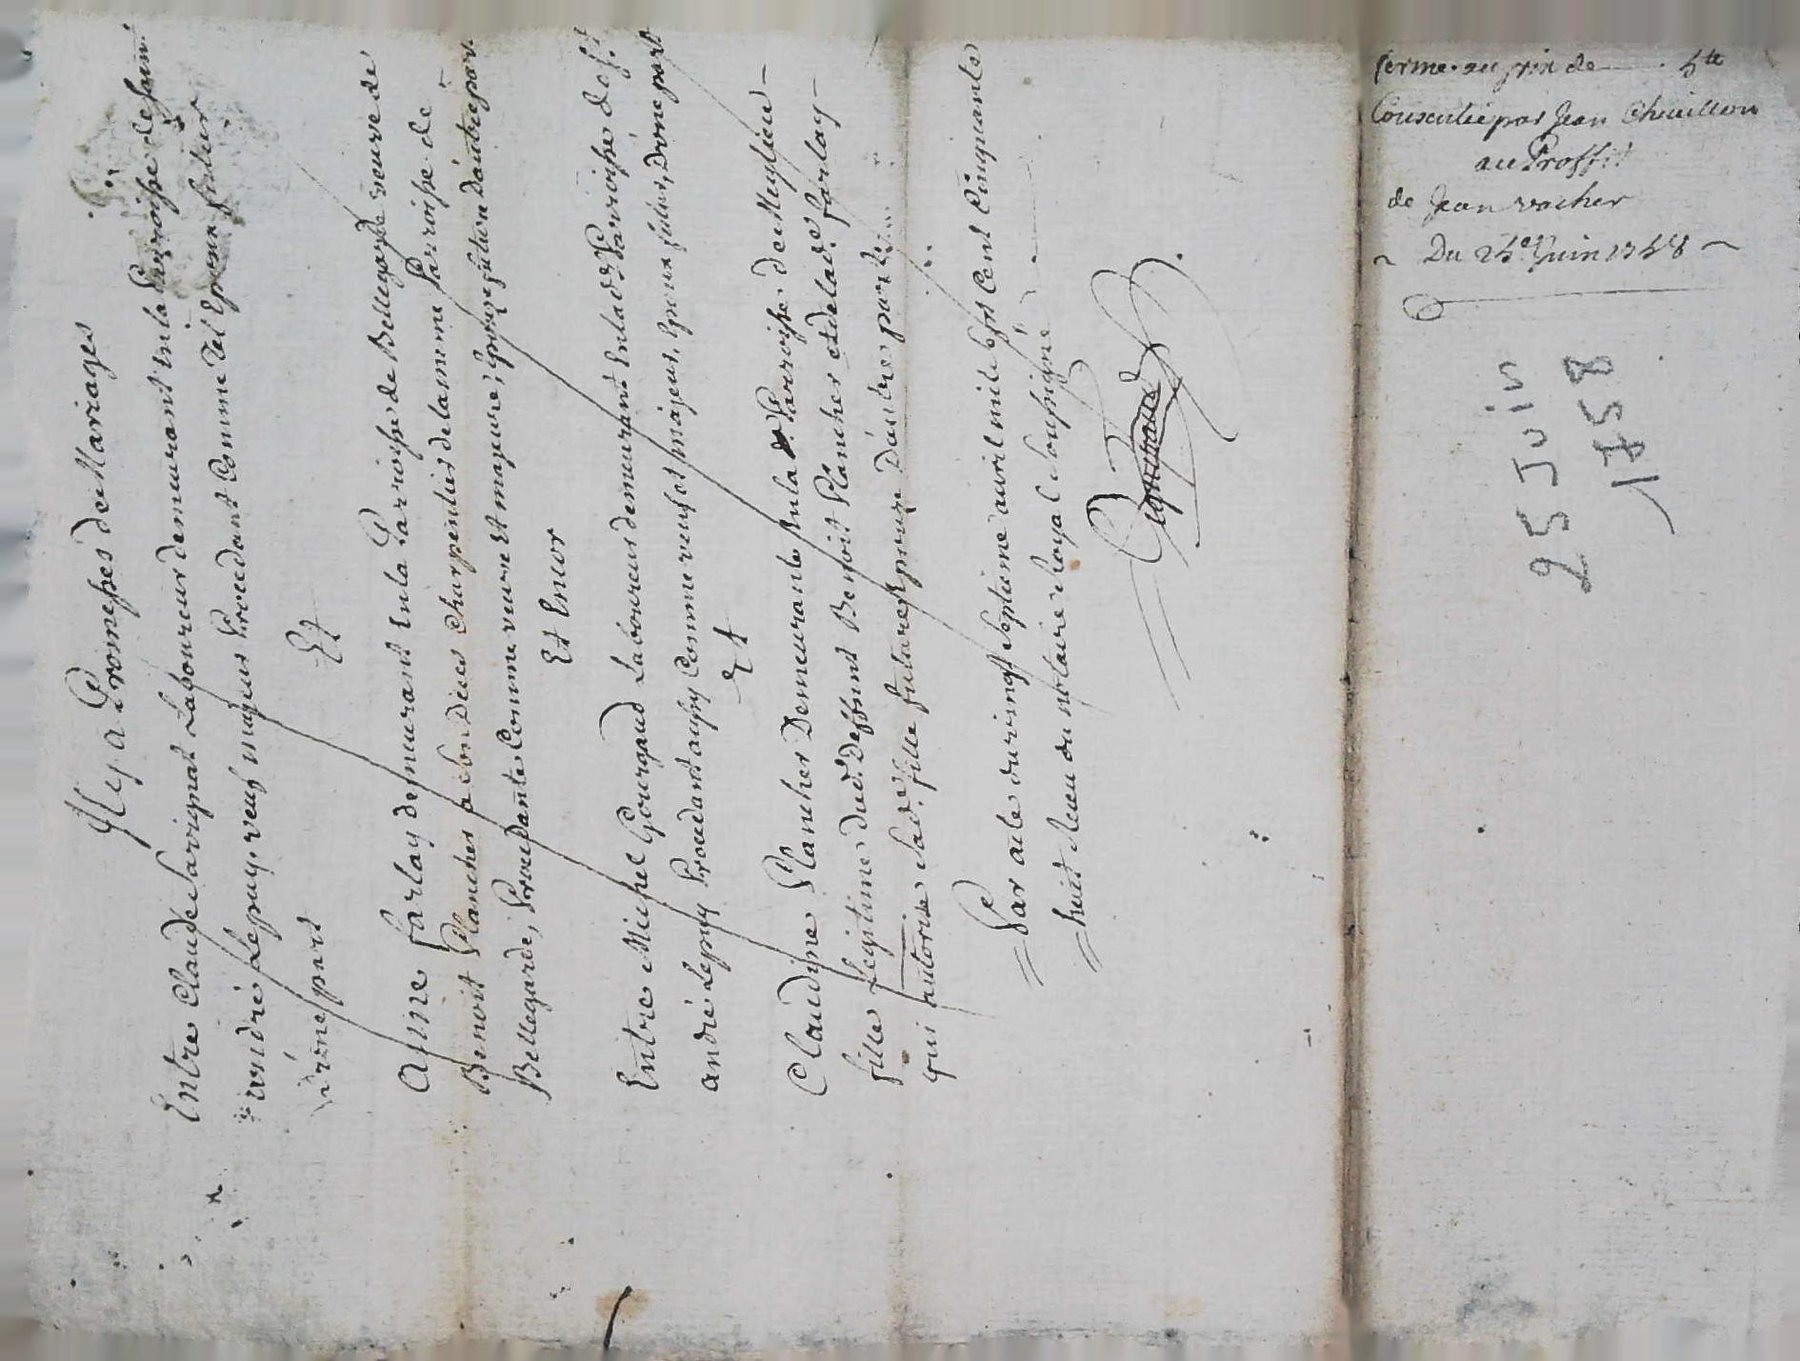 Il y a Promesses de Mariages
Entre Claude Savignat Laboureur demeurant en la Parroisse de saint
andré Lepuy, veuf majeur Procedant Comme tel Epoux futur
d'une part
Et
Anne farlay demeurant En la Parroisse de Bellegarde veuve de
Benoit Plancher a son Deces Charpentier de la mme Parroisse de
Bellegarde, Procedante Comme veuve Et majeure, Epouse future D'autre part
Et Encor
Entre Michel Gourgaud Laboureur demeurant En lad. Parroisse de st
andré Lepuy Procedant aussy Comme veuf et majeur, Epoux futur, D'une part
Et
Claudine Plancher Demeurante En la de Parroisse de
fille Legitime dud. Deffunt Benoit Plancher et de lad. farlay
qui autorise Sad. fille future Epouse D'autre part
Par acte du vingt Septieme avril mil Sept Cent Cinquante
huit Recu du notaire Royal Soussigné
ferme au prix de 5tt
Consentie par Jean
au Proffit
de Jean vacher
Du 25e Juin 1758
25 Juin
1758